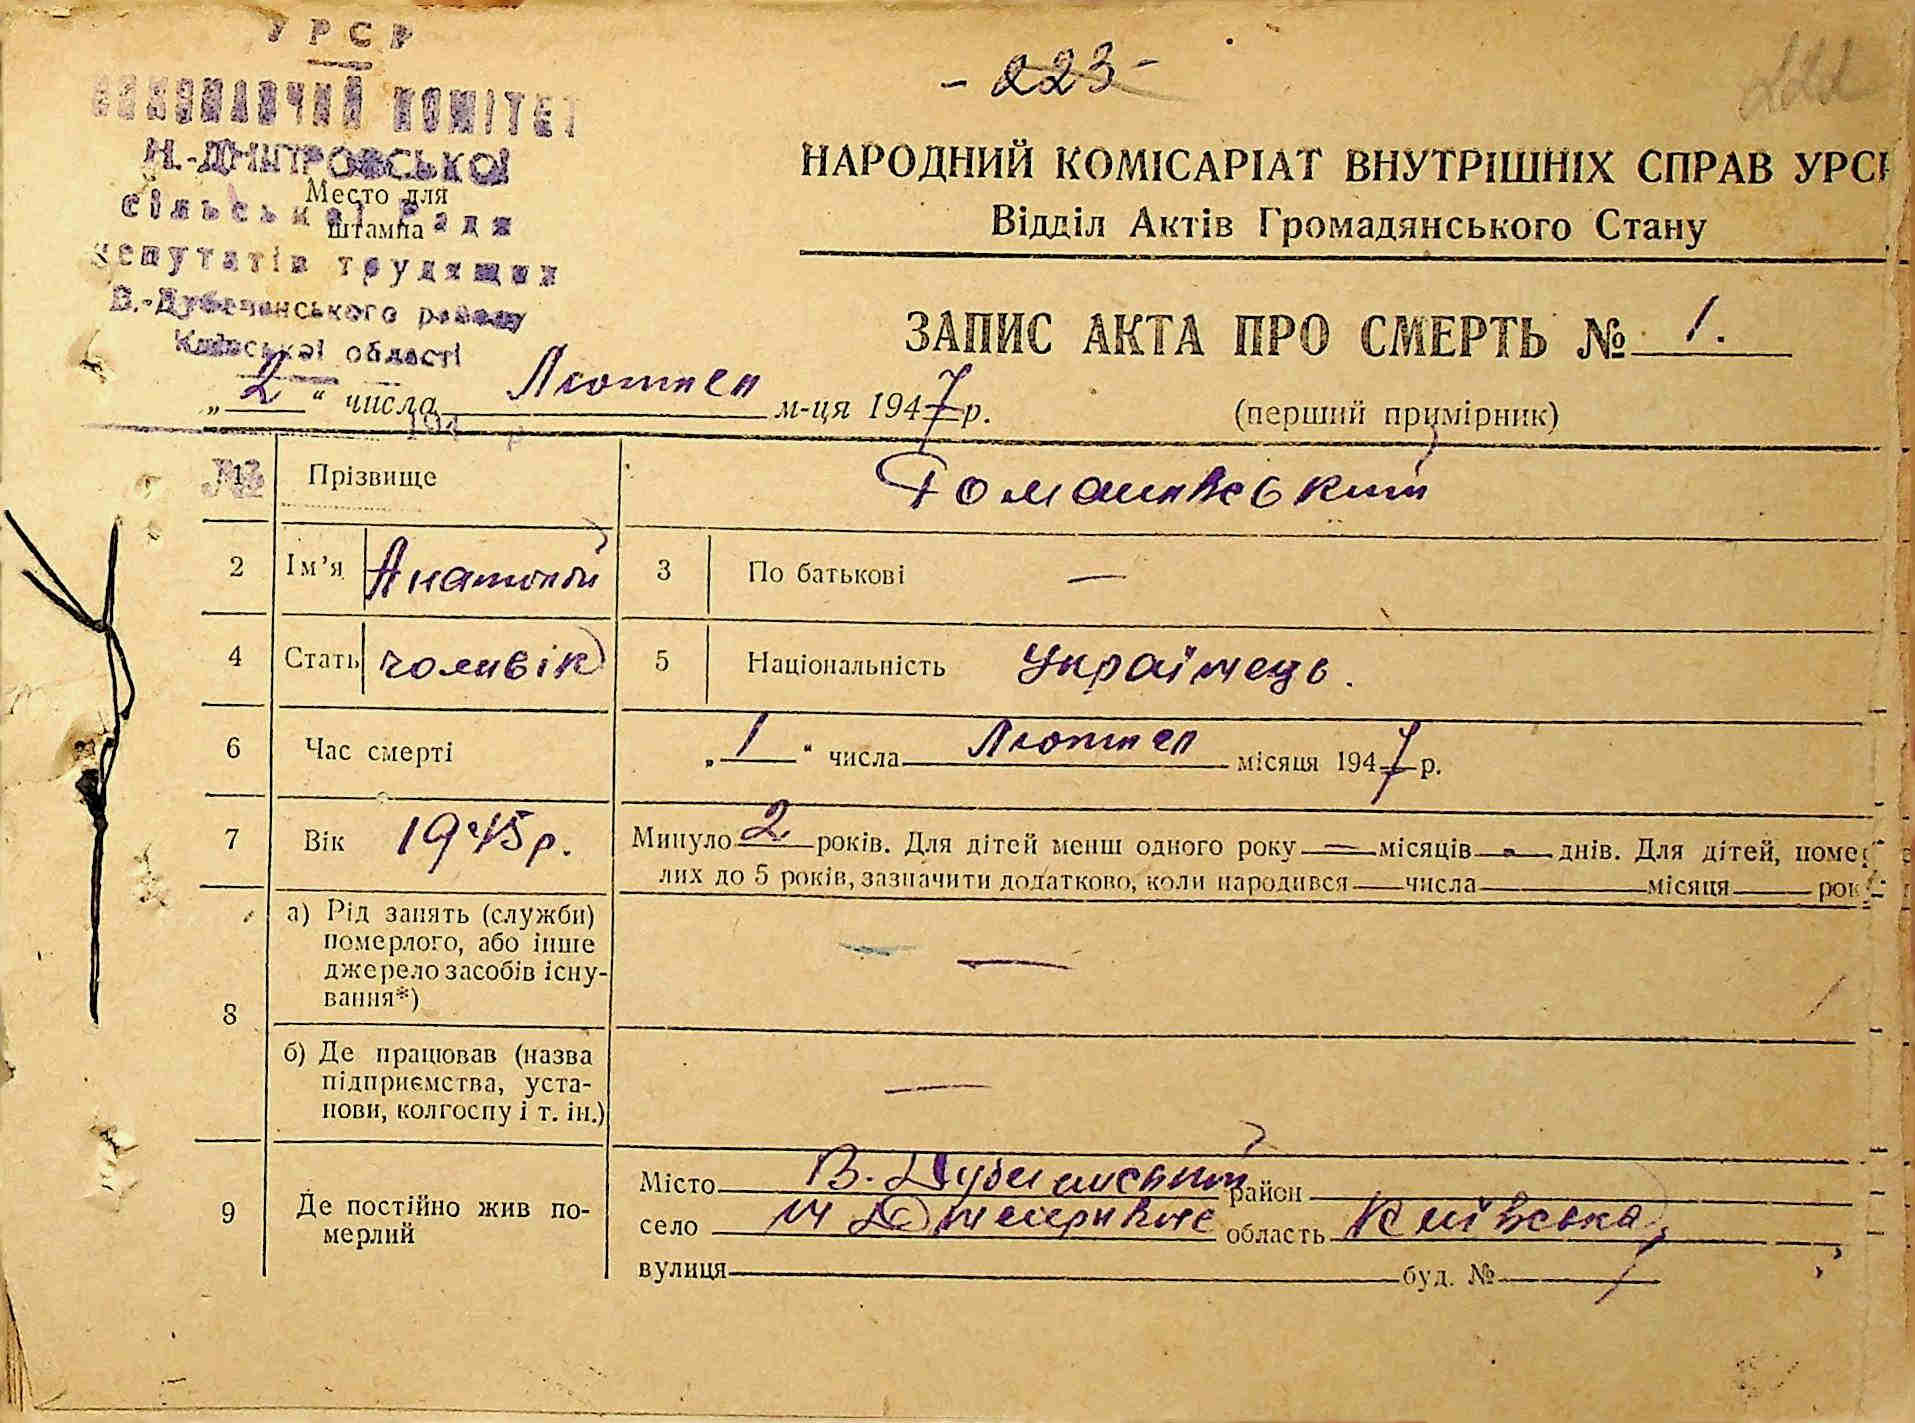 УРСР
ВИКОНАВЧИЙ КОМІТЕТ
Н.-ДМИТРОВСЬКОЇ
сільської Ради
депутатів трудящих
В.-Дубечанського району
Київської області
Место для
штампа
- 223 -
222
НАРОДНИЙ КОМІСАРІАТ ВНУТРІШНІХ СПРАВ УРСР
Відділ Актів Громадянського Стану
ЗАПИС АКТА ПРО СМЕРТЬ № 1.
„ 2 “ числа Лютнея м-ця 1947 р.
(перший примірник)
194 р
№
1 Прізвище Романівський
2 Ім’я Анатолій 3 По батькові —
4 Стать чоливік 5 Національність Українець.
6 Час смерті „ 1 “ числа Лютнея місяця 1947 р.
7 Вік 1945 р. Минуло 2 років. Для дітей менш одного року — місяців - днів. Для дітей, помер
лих до 5 років, зазначити додатково, коли народився числа місяця рок
8 а) Рід занять (служби)
померлого, або інше
джерело засобів існу-
вання*) —
б) Де працював (назва
підприємства, уста-
нови, колгоспу і т. ін.) —
9 Де постійно жив по-
мерлий
Місто В. район
село область Київська
вулиця буд. №